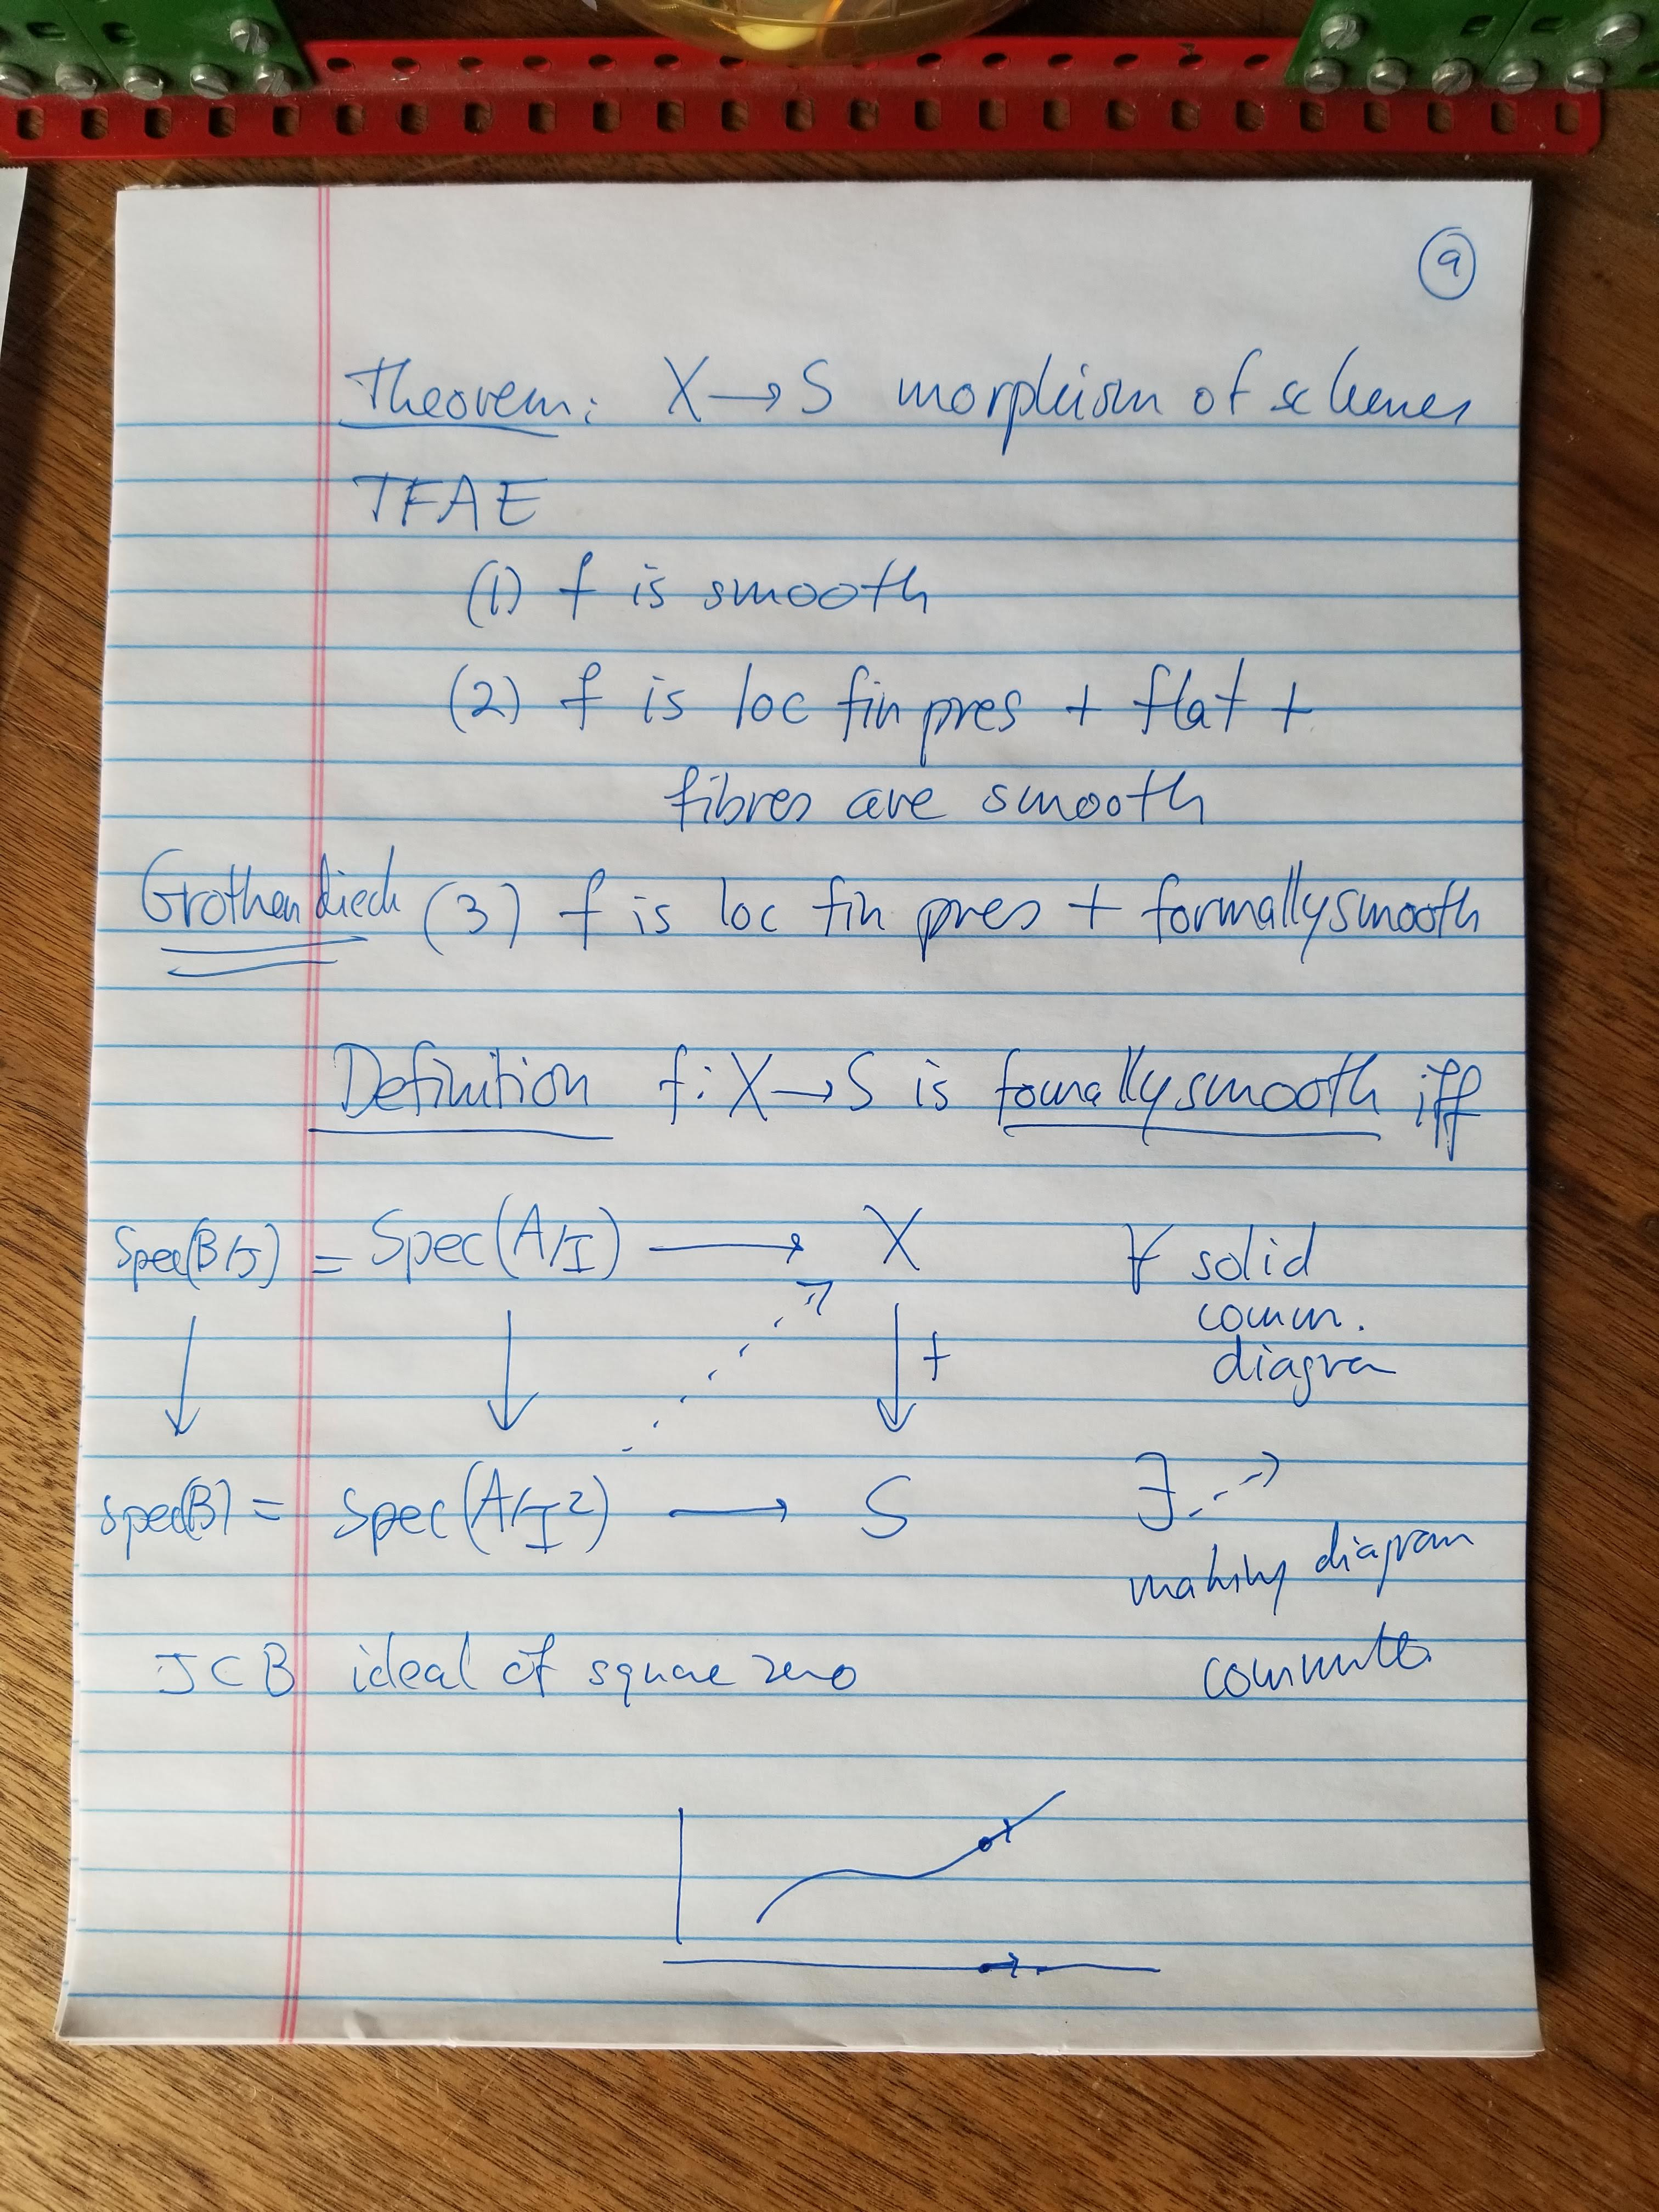 9
Theorem: X → S morphism of schemes
TFAE
(1) f is smooth
(2) f is loc fin pres + flat +
fibres are smooth
Grothendieck (3) f is loc fin pres + formally smooth
Definition f: X → S is formally smooth iff
Spec(B/J) = Spec(A/I) → X ∀ solid
comm.
f diagra
Spec(B) = Spec(A/I²) → S ∃ ⇢
making diagram
J ⊂ B ideal of square zero commute